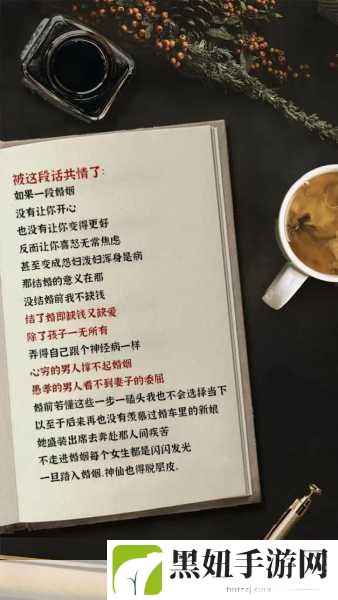 被这段话共情了:
如果一段婚姻
没有让你开心
也没有让你变得更好
反而让你喜怒无常焦虑
甚至变成怨妇泼妇浑身是病
那结婚的意义在那
没结婚前我不缺钱
结了婚即缺钱又缺爱
除了孩子一无所有
弄得自己跟个神经病一样
心穷的男人撑不起婚姻
愚孝的男人看不到妻子的委屈
婚前若懂这些一步一磕头我也不会选择当下
以至于后来再也没有羡慕过婚车里的新娘
她盛装出席去奔赴那人间疾苦
不走进婚姻每个女生都是闪闪发光
一旦踏入婚姻.神仙也得脱层皮。
黑妞手游网
hntszj.com